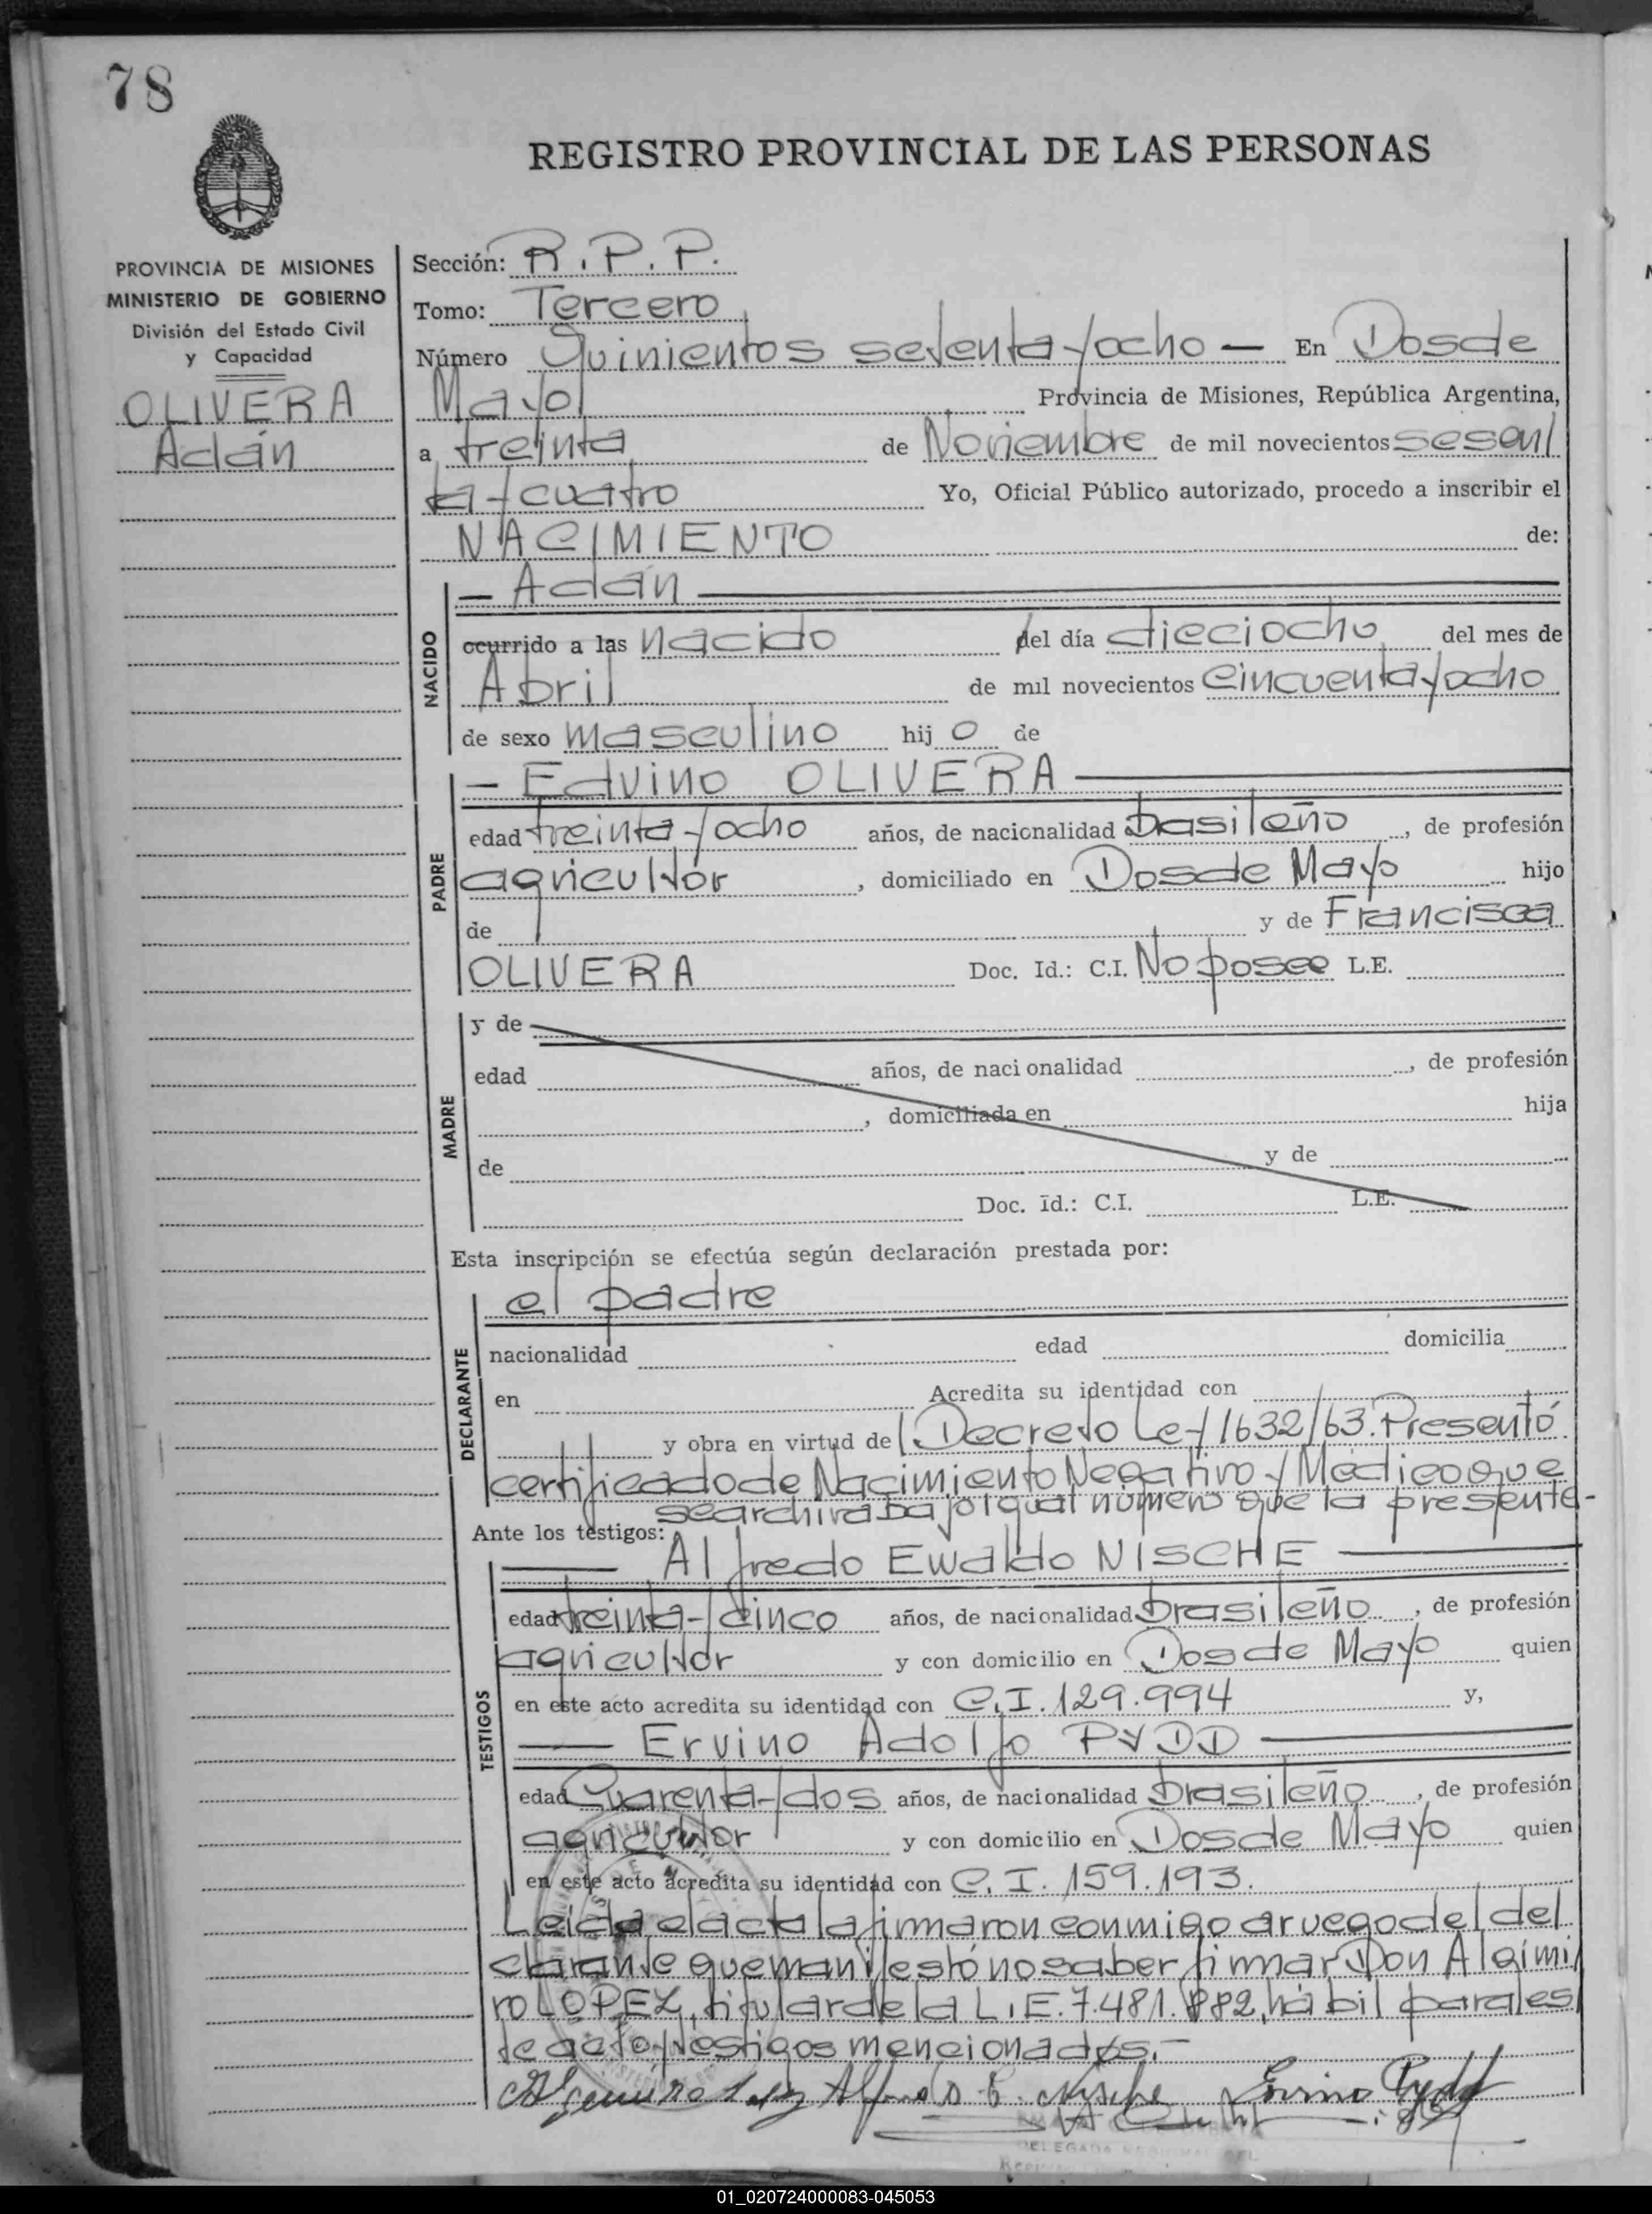 78
REGISTRO PROVINCIAL DE LAS PERSONAS
PROVINCIA DE MISIONES
MINISTERIO DE GOBIERNO
División del Estado Civil
y Capacidad
OLIVERA
Adán
Sección: R.P.P.
Tomo: Tercero
Número Quinientos setenta y ocho — En Dos de
Mayo Provincia de Misiones, República Argentina,
a treinta de Noviembre de mil novecientos sesen/
ta y cuatro Yo, Oficial Público autorizado, procedo a inscribir el
NACIMIENTO de:
NACIDO
— Adán —
ocurrido a las nacido del día dieciocho del mes de
Abril de mil novecientos cincuenta y ocho
de sexo masculino hijo de
PADRE
— Edvino OLIVERA —
edad treinta y ocho años, de nacionalidad brasileño, de profesión
agricultor, domiciliado en Dos de Mayo hijo
de y de Francisca
OLIVERA Doc. Id.: C.I. No posee L.E.
MADRE
y de
edad años, de nacionalidad , de profesión
, domiciliada en hija
de y de
Doc. Id.: C.I. L.E.
Esta inscripción se efectúa según declaración prestada por:
DECLARANTE
el padre
nacionalidad edad domicilia
en Acredita su identidad con
y obra en virtud del Decreto Ley 1632/63. Presentó
certificado de Nacimiento Negativo y Médico que
se archiva bajo igual número que la presente-
Ante los testigos:
TESTIGOS
— Alfredo Ewaldo NISCHE —
edad treinta y cinco años, de nacionalidad brasileño, de profesión
agricultor y con domicilio en Dos de Mayo quien
en este acto acredita su identidad con C.I. 129.994 y,
— Ervino Adolfo PYDD —
edad Cuarenta y dos años, de nacionalidad brasileño, de profesión
agricultor y con domicilio en Dos de Mayo quien
en este acto acredita su identidad con C.I. 159.193.
Leida el acta la firmaron conmigo a ruego del de/
clarante que manifestó no saber firmar Don Algimi/
ro LOPEZ, titular de la L.E. 7.481.882, hábil para es/
te acto y testigos mencionados.-
Algimiro Lopez Alfredo E. Nische Ervino Pydd
DELEGADA
01_020724000083-045053